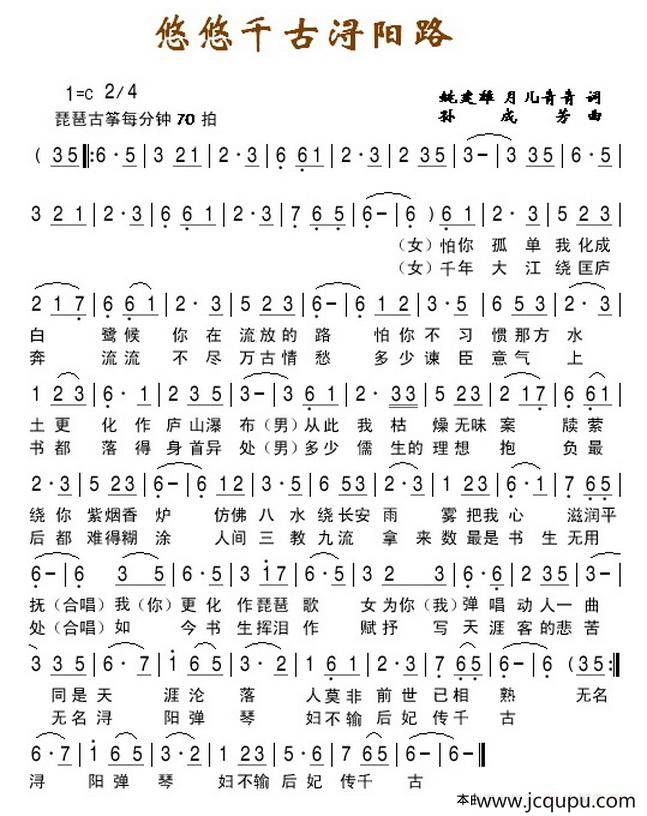 悠悠千古浔阳路
1=C 2/4
姚建雄 月儿青青 词
琵琶古筝每分钟 70 拍
孙 成 芳 曲
( 3 5 |: 6 · 5 | 3 2 1 | 2 · 3 | 6 6 1 | 2 · 3 | 2 3 5 | 3 - | 3 3 5 | 6 · 5 |
3 2 1 | 2 · 3 | 6 6 1 | 2 · 3 | 7 6 5 | 6 - | 6 ) 6 1 | 2 · 3 | 5 2 3 |
（女）怕你 孤 单 我 化成
（女）千年 大 江 绕 匡庐
2 1 7 | 6 6 1 | 2 · 3 | 5 2 3 5 | 6 - | 6 1 2 | 3 · 5 | 6 5 3 | 2 · 3 |
白 鹭候 你 在 流放的 路 怕你 不 习 惯那方 水
奔 流流 不 尽 万古情 愁 多少 谏 臣 意气 上
1 2 3 | 6 · 5 | 3 2 3 5 | 3 - | 3 6 1 | 2 · 3 3 | 5 2 3 | 2 1 7 | 6 6 1 |
土更 化 作 庐山瀑 布（男）从此 我 枯 燥无味 案 牍萦
书都 落 得 身首异 处（男）多少 儒 生的 理想 抱 负最
2 · 3 | 5 2 3 | 6 - | 6 1 2 | 3 · 5 | 6 5 3 | 2 · 3 | 1 2 3 | 7 6 5 |
绕你 紫烟香 炉 仿佛 八 水 绕长安 雨 雾 把我心 滋润平
后都 难得糊 涂 人间 三 教 九流 拿 来 数最是 书 生 无用
6 - | 6 3 5 | 6 · 5 | 3 1 7 | 6 · 5 | 3 3 5 | 3 · 2 | 2 3 | 6 · 5 |
抚（合唱）我（你）更化 作琵琶 歌 女为你（我）弹 唱动人一曲
处（合唱）如 今书 生挥泪 作 赋抒 写 天涯 客的悲 苦
3 3 5 | 6 · 7 | 1 6 5 | 3 · 2 | 1 6 1 | 2 · 3 | 7 6 5 | 6 - | ( 3 5 :|
同是 天 涯沦 落 人莫非 前世 已相 熟 无名
无名 浔 阳弹 琴 妇不输 后妃 传千 古
6 · 7 | 1 6 5 | 3 · 2 | 1 6 1 | 2 · 3 | 5 6 5 | 6 - | 6 - ‖
浔 阳弹 琴 妇不输 后妃 传千 古
www.jcqupu.com